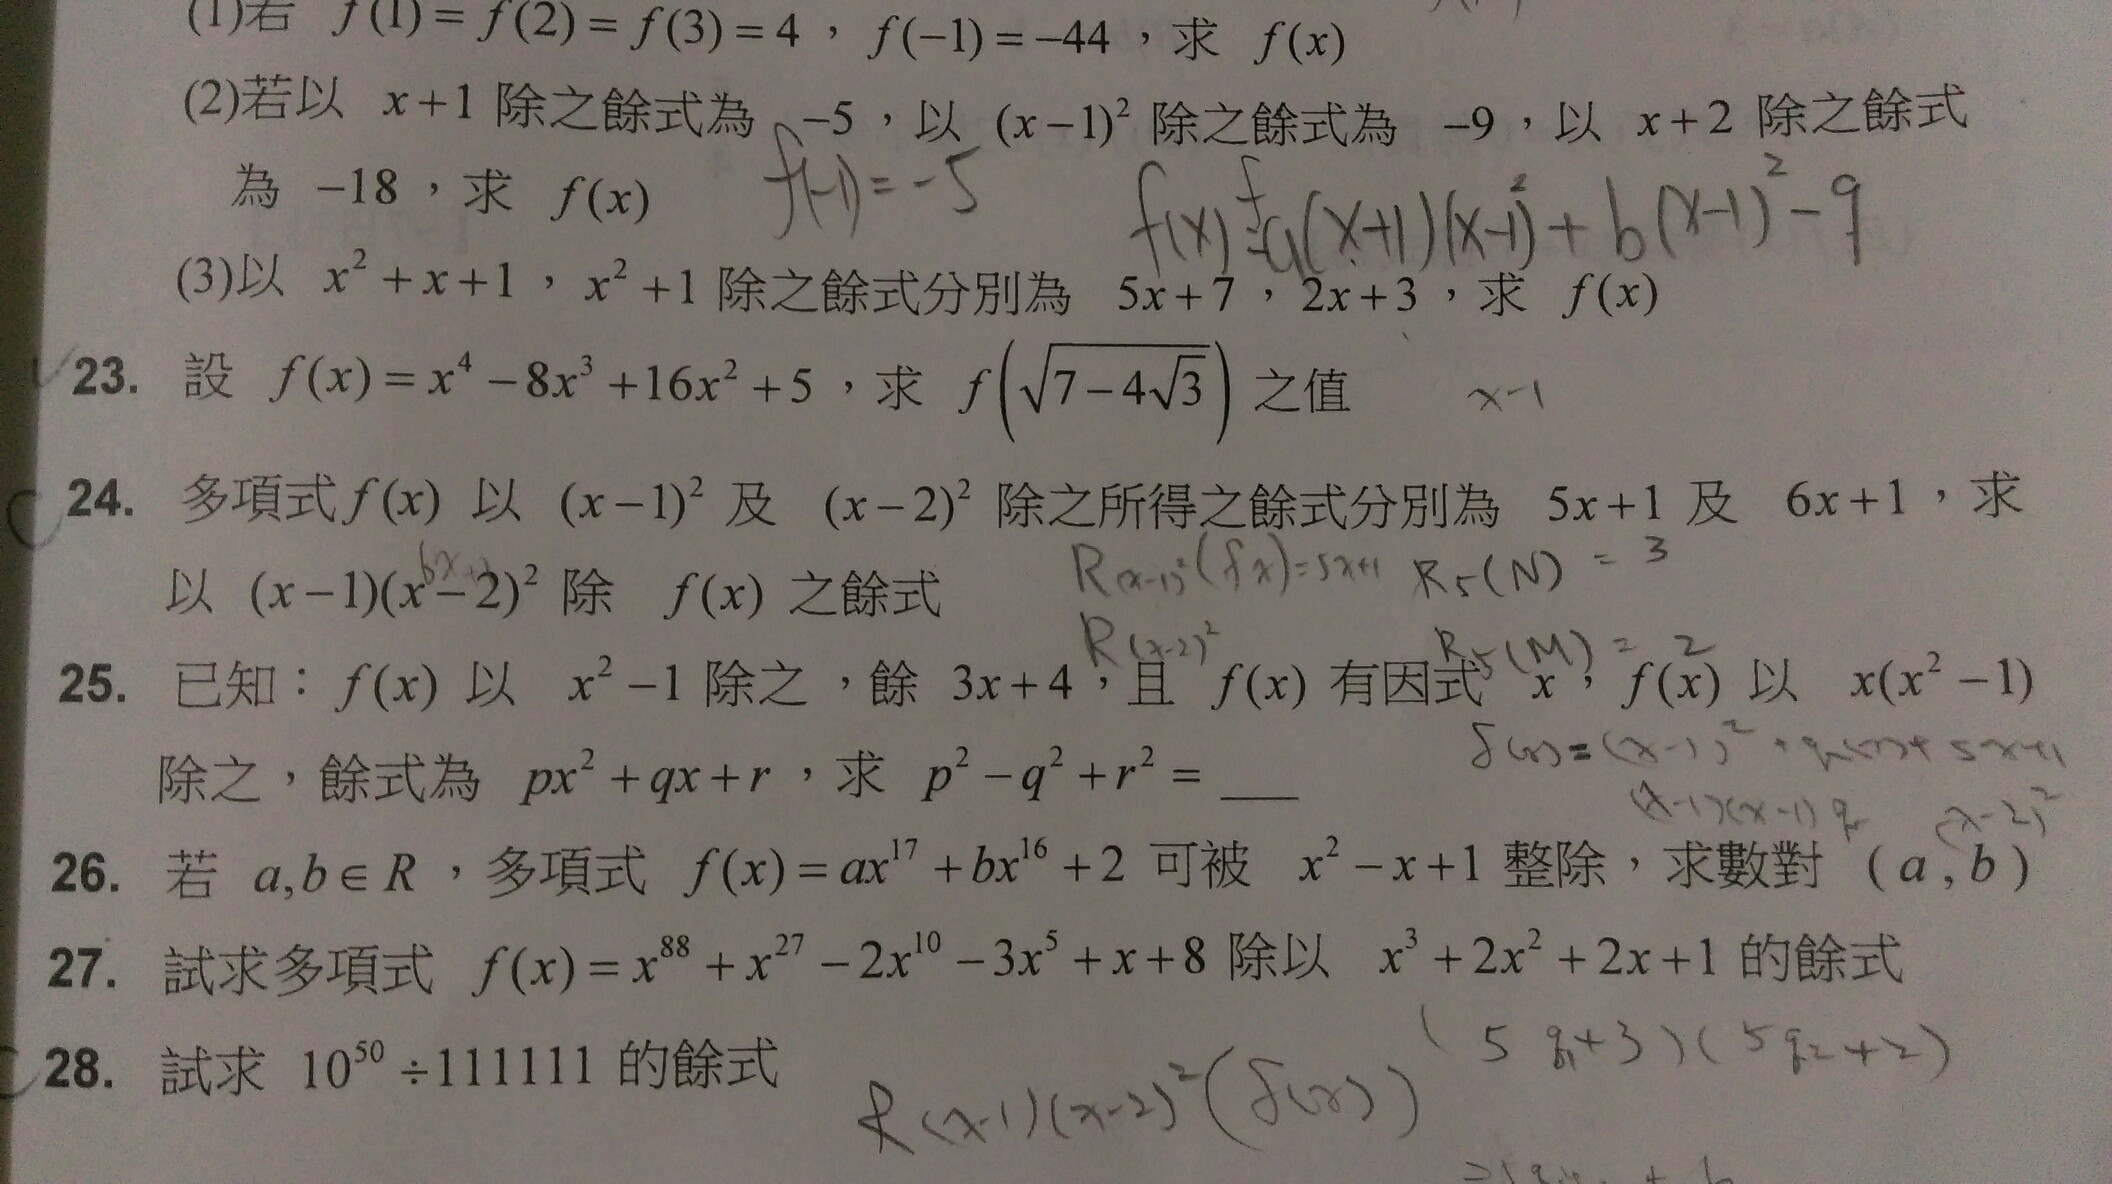 (1)若 f(1)=f(2)=f(3)=4，f(−1)=−44，求 f(x)
(2)若以 x+1 除之餘式為 −5，以 (x−1)² 除之餘式為 −9，以 x+2 除之餘式
為 −18，求 f(x)
f(-1)=-5
f(x)=a(x+1)(x-1)²+b(x-1)²-9
(3)以 x²+x+1，x²+1 除之餘式分別為 5x+7，2x+3，求 f(x)
23. 設 f(x)=x⁴−8x³+16x²+5，求 f(√(7−4√3)) 之值
x-1
24. 多項式f(x) 以 (x−1)² 及 (x−2)² 除之所得之餘式分別為 5x+1 及 6x+1，求
以 (x−1)(x−2)² 除 f(x) 之餘式
R(x-1)²(f(x))=5x+1 R₅(N)=3
R(x-2)² R₅(M)=2
25. 已知：f(x) 以 x²−1 除之，餘 3x+4，且 f(x) 有因式 x，f(x) 以 x(x²−1)
除之，餘式為 px²+qx+r，求 p²−q²+r²=___
(x-1)(x-1)q (x-2)²
26. 若 a,b∈R，多項式 f(x)=ax¹⁷+bx¹⁶+2 可被 x²−x+1 整除，求數對 (a,b)
27. 試求多項式 f(x)=x⁸⁸+x²⁷−2x¹⁰−3x⁵+x+8 除以 x³+2x²+2x+1 的餘式
(5q₁+3)(5q₂+2)
28. 試求 10⁵⁰÷111111 的餘式
R(x-1)(x-2)²(f(x))